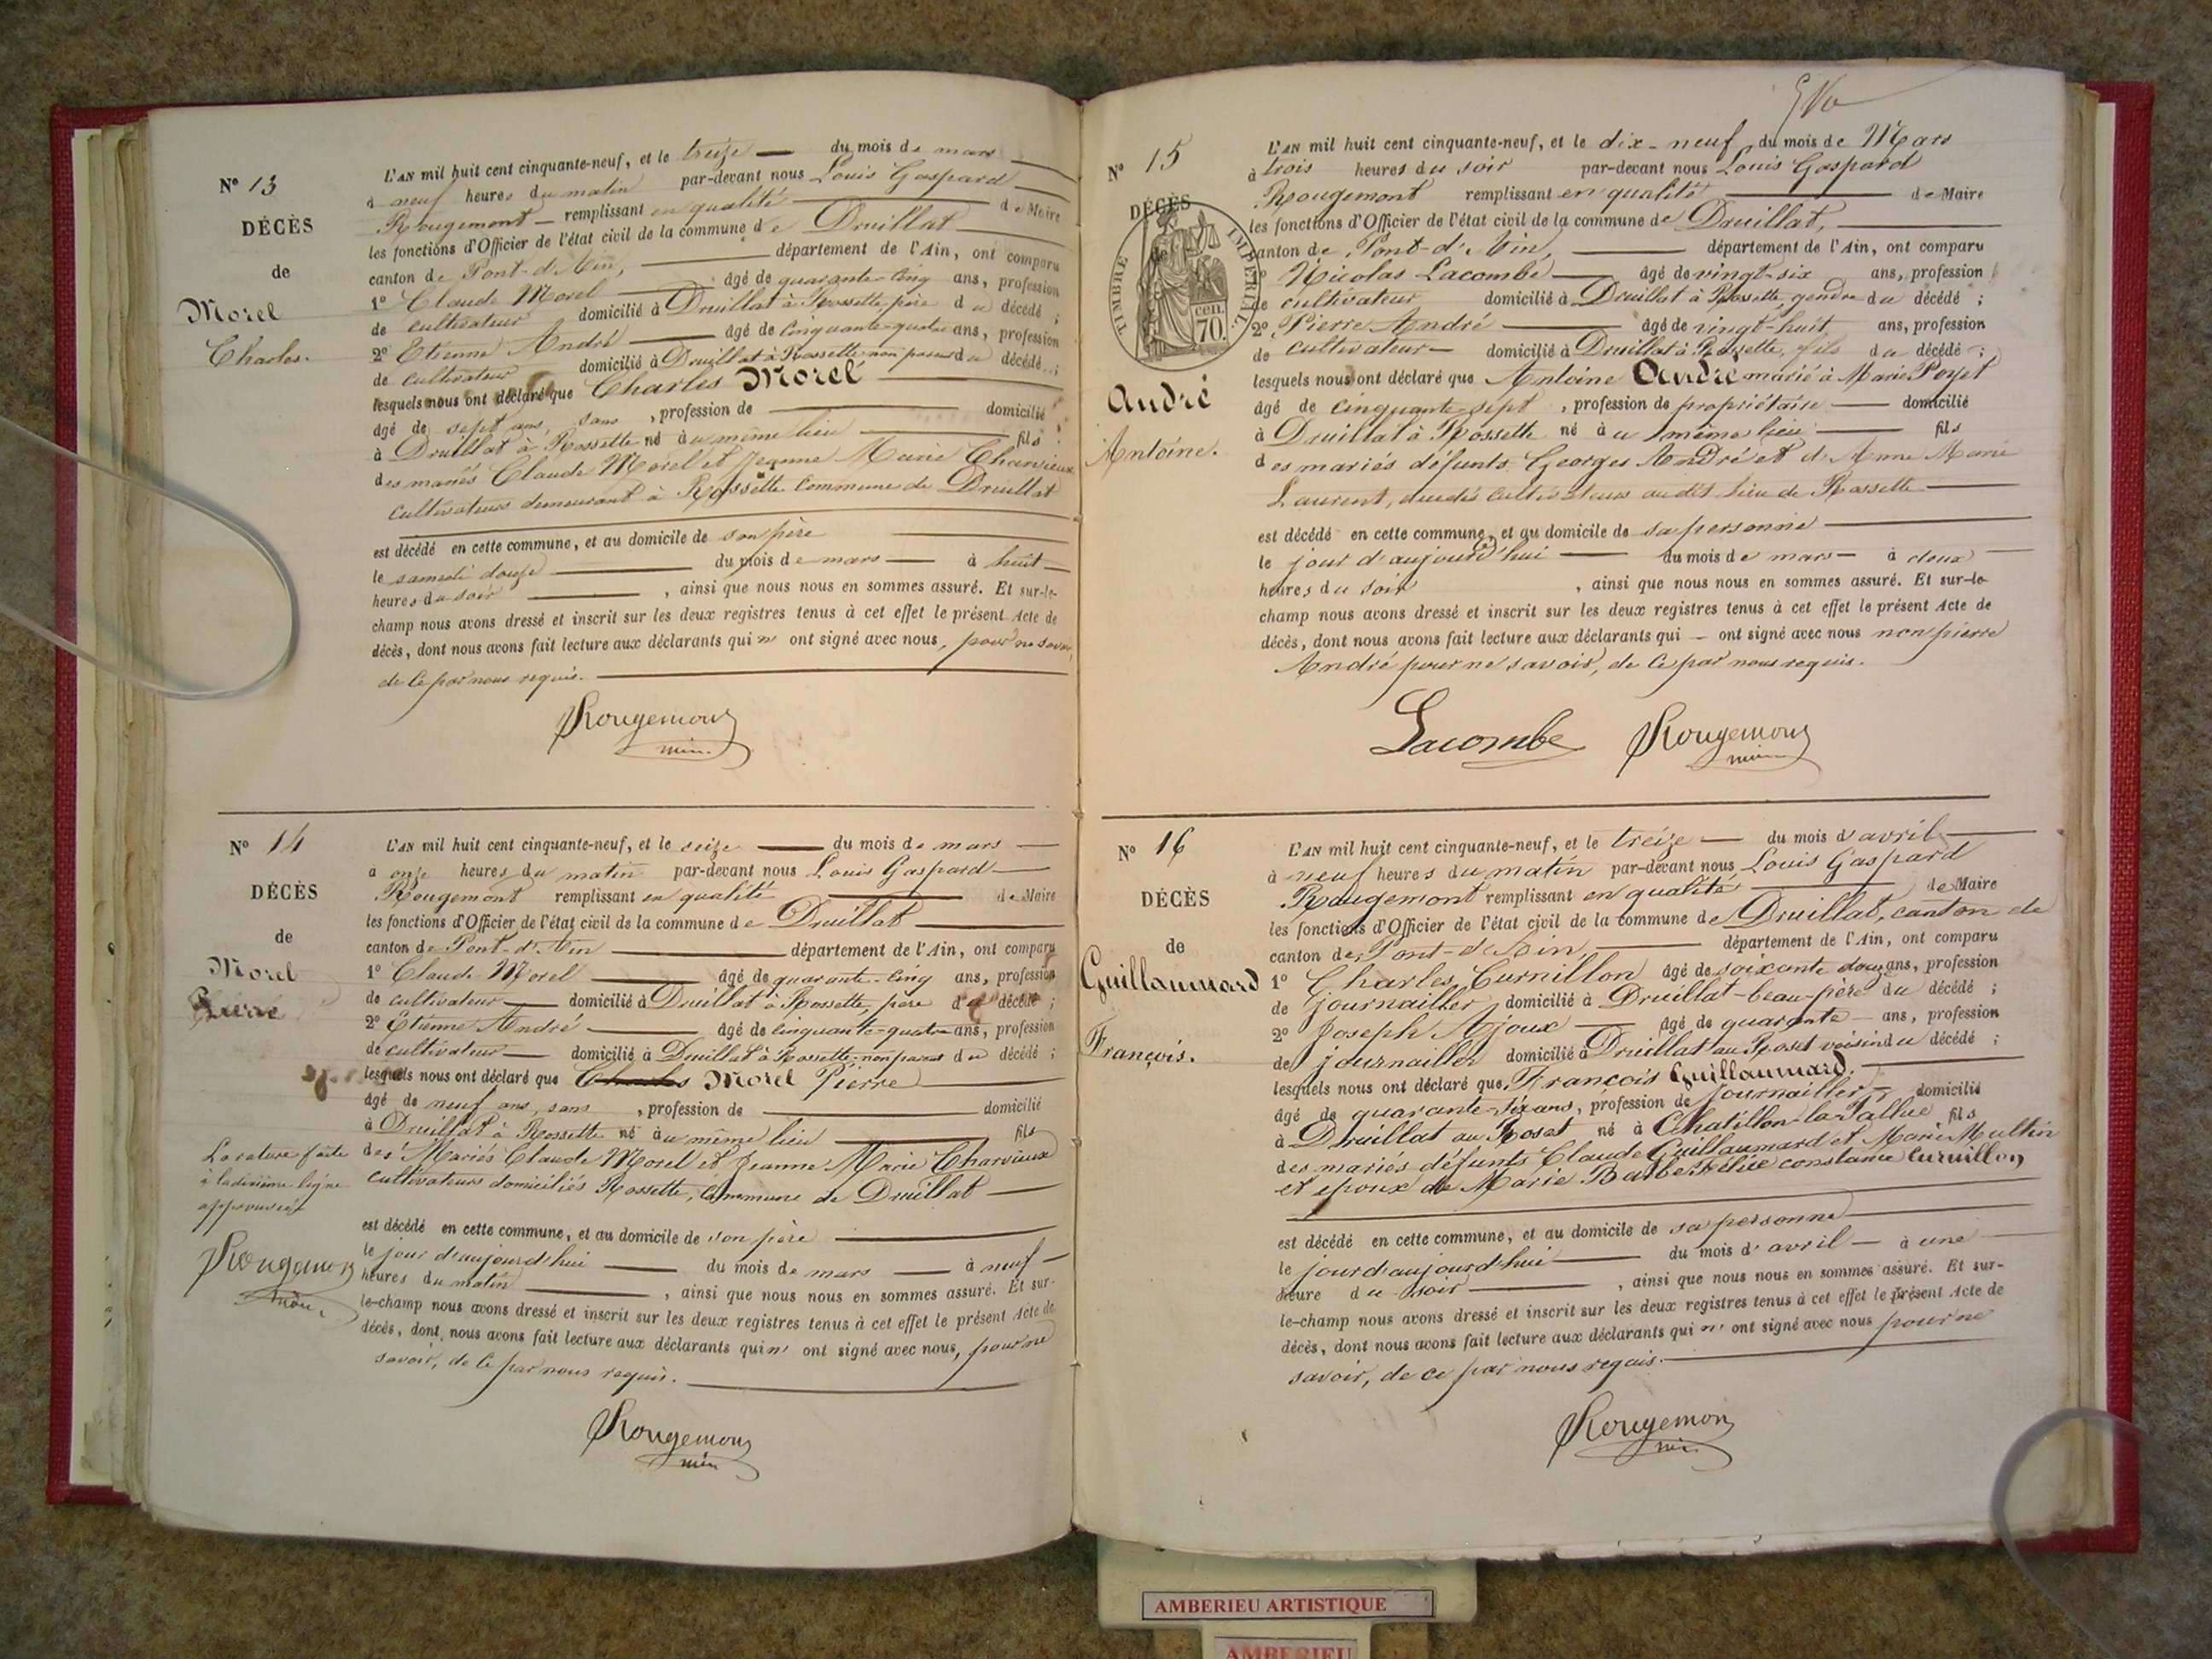 N° 13
DÉCÈS
de
Morel
Charles.
L'AN mil huit cent cinquante-neuf, et le treize du mois de mars
à neuf heures du matin par-devant nous Louis Gaspard
Rougemont remplissant en qualité de Maire
les fonctions d'Officier de l'état civil de la commune de Druillat
canton de Pont-d'Ain, département de l'Ain, ont comparu
1° Claude Morel âgé de quarante-cinq ans, profession
de cultivateur domicilié à Druillat à Rossette père du décédé ;
2° Etienne André âgé de cinquante-quatre ans, profession
de cultivateur domicilié à Druillat à Rossette non parent du décédé ;
lesquels nous ont déclaré que Charles Morel
âgé de sept ans, sans , profession de domicilié
à Druillat à Rossette né à u même lieu fils
des mariés Claude Morel et Jeanne Marie Charvieux
cultivateurs demeurant à Rossette commune de Druillat
est décédé en cette commune, et au domicile de son père
le samedi douze du mois de mars à huit
heures du soir , ainsi que nous nous en sommes assuré. Et sur-le-
champ nous avons dressé et inscrit sur les deux registres tenus à cet effet le présent Acte de
décès, dont nous avons fait lecture aux déclarants qui n' ont signé avec nous, pour ne savoir,
de ce par nous requis.
Rougemont
N° 14
DÉCÈS
de
Morel
Pierre
L'AN mil huit cent cinquante-neuf, et le seize du mois de mars
à onze heures du matin par-devant nous Louis Gaspard
Rougemont remplissant en qualité de Maire
les fonctions d'Officier de l'état civil de la commune de Druillat
canton de Pont-d'Ain département de l'Ain, ont comparu
1° Claude Morel âgé de quarante-cinq ans, profession
de cultivateur domicilié à Druillat à Rossette, père du décédé ;
2° Étienne André âgé de cinquante-quatre ans, profession
de cultivateur domicilié à Druillat à Rossette non parent du décédé ;
lesquels nous ont déclaré que Charles Morel Pierre
âgé de neuf ans, sans , profession de domicilié
à Druillat à Rossette né à u même lieu fils
des Mariés Claude Morel et Jeanne Marie Charvieux
cultivateurs domiciliés Rossette, commune de Druillat
La rature faite
à la dixième ligne
approuvée
Rougemont
est décédé en cette commune, et au domicile de son père
le jour d'aujourd'hui du mois de mars à neuf
heures du matin , ainsi que nous nous en sommes assuré. Et sur-
le-champ nous avons dressé et inscrit sur les deux registres tenus à cet effet le présent Acte de
décès, dont nous avons fait lecture aux déclarants qui n' ont signé avec nous, pour ne
savoir, de ce par nous requis.
Rougemont
N° 15
DÉCÈS
de
TIMBRE IMPÉRIAL
70 cen.
André
Antoine.
L'AN mil huit cent cinquante-neuf, et le dix-neuf du mois de Mars
à trois heures du soir par-devant nous Louis Gaspard
Rougemont remplissant en qualité de Maire
les fonctions d'Officier de l'état civil de la commune de Druillat,
canton de Pont-d'Ain, département de l'Ain, ont comparu
1° Nicolas Lacombe âgé de vingt-six ans, profession
de cultivateur domicilié à Druillat à Rossette, gendre du décédé ;
2° Pierre André âgé de vingt-huit ans, profession
de cultivateur domicilié à Druillat à Rossette, fils du décédé ;
lesquels nous ont déclaré que Antoine André marié à Marie Poyet
âgé de cinquante-sept , profession de propriétaire domicilié
à Druillat à Rossette né à u même lieu fils
des mariés défunts Georges André et d'Anne Marie
Laurent, cultivateurs audit lieu de Rossette
est décédé en cette commune, et au domicile de sa personne
le jour d'aujourd'hui du mois de mars à deux
heures du soir , ainsi que nous nous en sommes assuré. Et sur-le-
champ nous avons dressé et inscrit sur les deux registres tenus à cet effet le présent Acte de
décès, dont nous avons fait lecture aux déclarants qui ont signé avec nous non pierre
André pour ne savoir, de ce par nous requis.
Lacombe Rougemont
N° 16
DÉCÈS
de
Guillaumard
François.
L'AN mil huit cent cinquante-neuf, et le treize du mois d'avril
à neuf heures du matin par-devant nous Louis Gaspard
Rougemont remplissant en qualité de Maire
les fonctions d'Officier de l'état civil de la commune de Druillat, canton de
canton de Pont-d'Ain, département de l'Ain, ont comparu
1° Charles Curnillon âgé de soixante douze ans, profession
de journailler domicilié à Druillat-beau-père du décédé ;
2° Joseph Ajoux âgé de quarante ans, profession
de journailler domicilié à Druillat au Roset voisin du décédé ;
lesquels nous ont déclaré que François Guillaumard.
âgé de quarante-six ans, profession de journailler domicilié
à Druillat au Roset né à Chatillon-la-Pallue fils
des mariés défunts Claude Guillaumard et Marie Multin
et époux de Marie Barbe Félicie constance Curnillon
est décédé en cette commune, et au domicile de sa personne
le jour d'aujourd'hui du mois d'avril à une
heure du soir , ainsi que nous nous en sommes assuré. Et sur-
le-champ nous avons dressé et inscrit sur les deux registres tenus à cet effet le présent Acte de
décès, dont nous avons fait lecture aux déclarants qui n' ont signé avec nous pour ne
savoir, de ce par nous requis.
Rougemont
AMBERIEU ARTISTIQUE
AMBERIEU